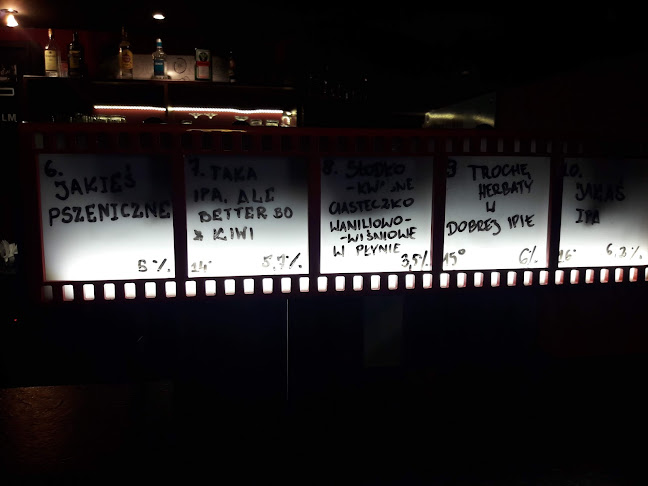 LM
6.
JAKIEŚ
PSZENICZNE
5%
7. TAKA
IPA, ALE
BETTER BO
Z KIWI
14° 5,7%
8. SŁODKO
-KWAŚNE
CIASTECZKO
WANILIOWO-
-WIŚNIOWE
W PŁYNIE
3,5%
9 TROCHĘ
HERBATY
W
DOBREJ IPIE
15° 6%
10.
JAKAŚ
IPA
16° 6,2%